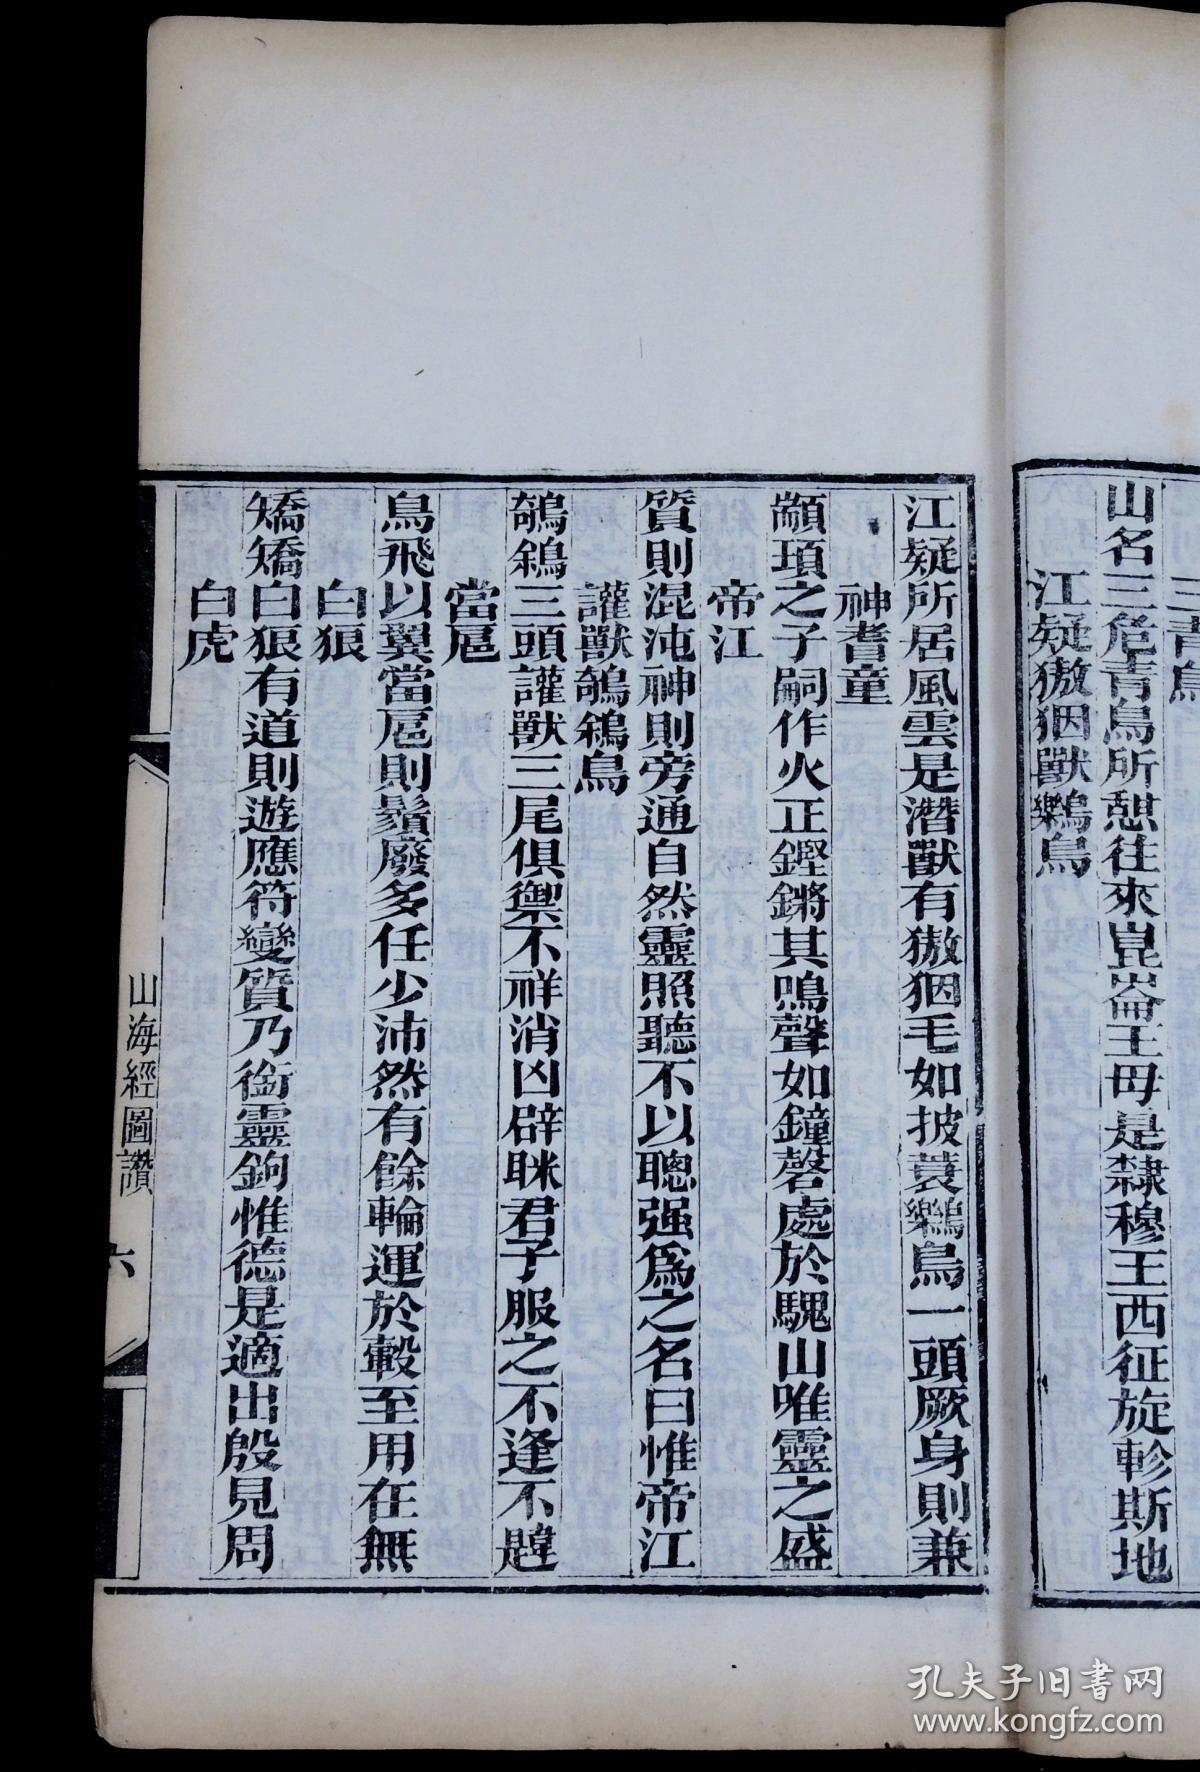 三青鳥
山名三危青鳥所憩往來崑崙王母是隸穆王西征旋軫斯地
江疑獓㹶獸鴸鳥
江疑所居風雲是潛獸有獓㹶毛如披蓑鴸鳥一頭厥身則兼
神耆童
顓頊之子嗣作火正鏗鏘其鳴聲如鐘磬處於騩山唯靈之盛
帝江
質則混沌神則旁通自然靈照聽不以聰强爲之名曰惟帝江
讙獸鵸鵌鳥
鵸鵌三頭讙獸三尾俱禦不祥消凶辟眯君子服之不逢不韙
當扈
鳥飛以翼當扈則鬚廢多任少沛然有餘輪運於轂至用在無
白狼
矯矯白狼有道則遊應符變質乃銜靈鉤惟德是適出殷見周
白虎
山海經圖讚
六
孔夫子旧书网
www.kongfz.com